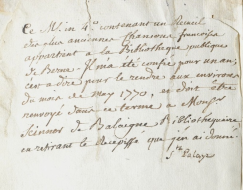 Ce Ms. in 4° contenant un Recueil
des plus anciennes Chansons françoises
appartient à la Bibliothèque publique
de Berne. Il m'a été confié pour un an;
c'est à dire pour le rendre aux environs
du mois de May 1770, et doit être
renvoyé dans ce terme à Monsr
Sinner de Balaigues Bibliothéquaire
en retirant le Récépissé que j'en ai donné.
Ste Palaye